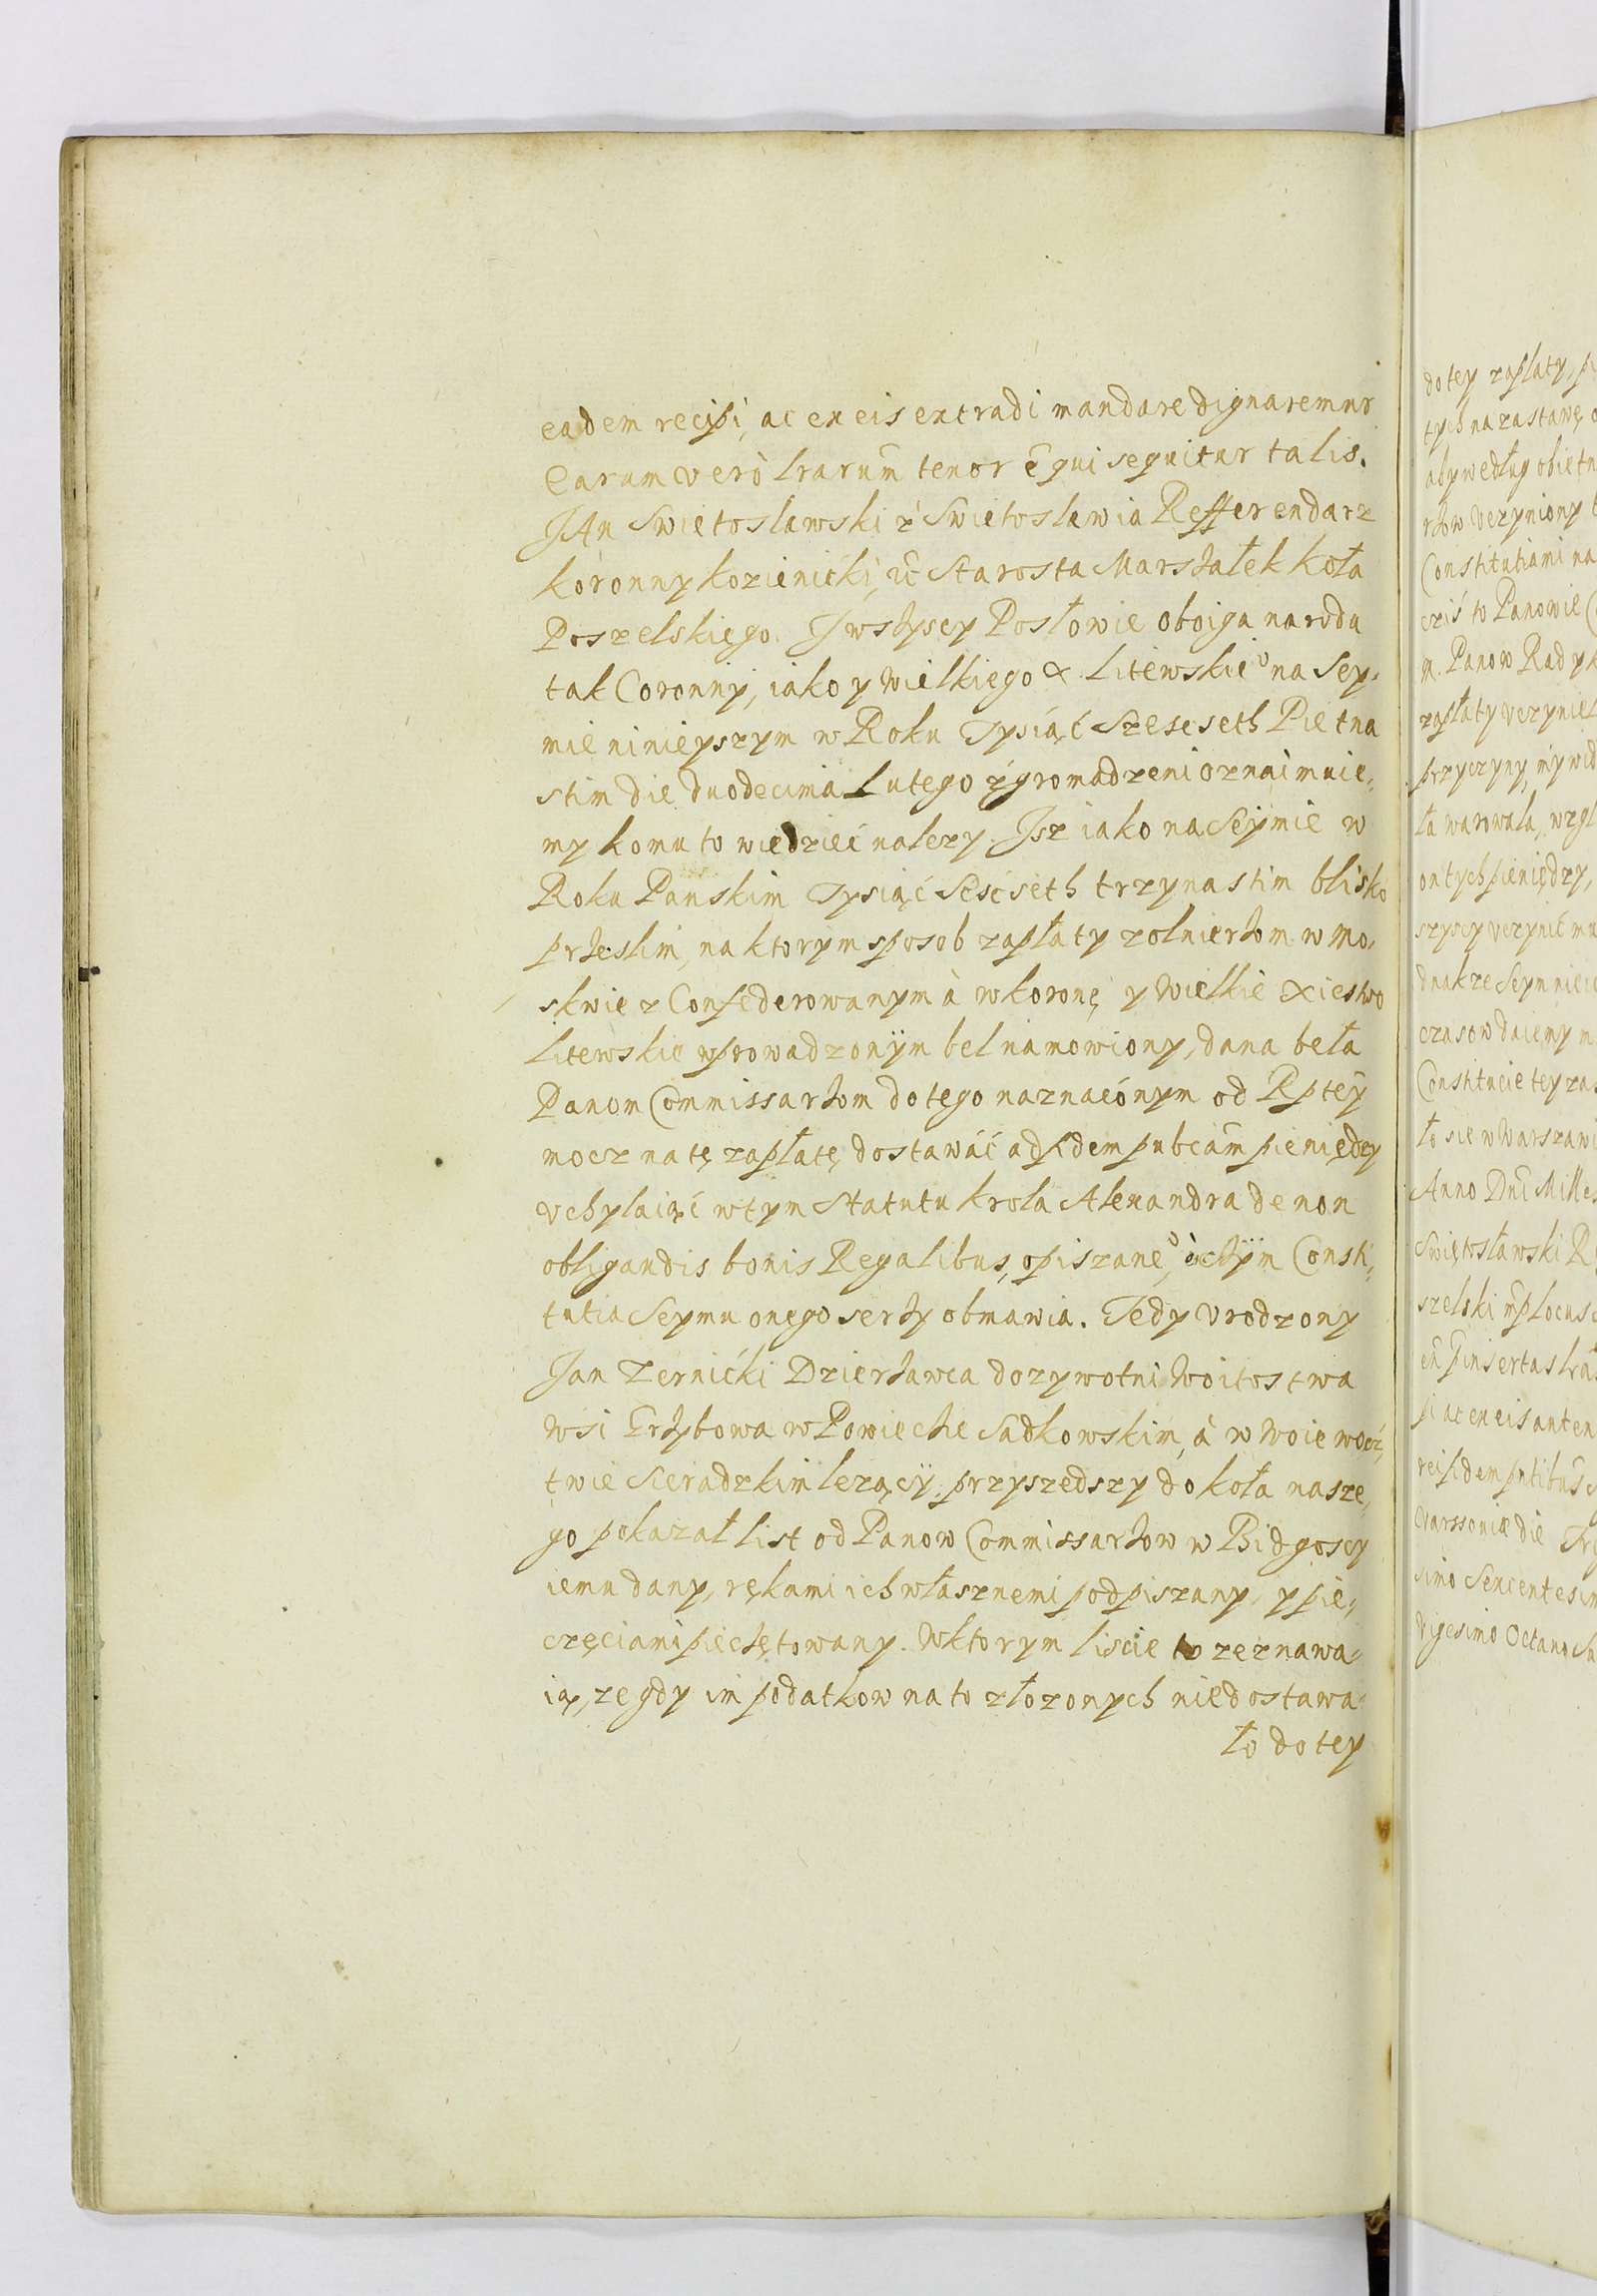 eadem recipi, ac ex eis extradi mandare dignaremur
Earum verò lrarum tenor e qui sequitur talis.
JAn Swietoslawski z Swietoslawia Refferendarz
koronny kozienicki, ic Starosta Marszałek koła
Poszelskiego. J wszyscy Posłowie oboiga narodu
tak Coronny, iako y Wielkiego X. Litewskieo na Sey-
mie ninieyszym w Roku Tysiąć Szescseth Pietna
stim die duodecima Lutego zgromadzeni oznaimuie-
my komu to wiedzieć nalezy. Jsz iako na Seymie w
Roku Panskim Tysiąć Sescseth trzynastim blisko
przeslim, na ktorym sposob zapłaty zolnierzom w Mo-
skwie z Confederowanym à w koronę y Wielkie Xiestwo
Litewskie wprowadzonÿm bel namowiony, dana beła
Panom Commissarzom do tego naznaćonym od Rptey
mocz na tę zapłatę dostawáć ad fidem pubcam pieniędzy
vchylaiąć w tym Statutu krola Alexandra de non
obligandis bonis Regalibus, opiszaneo, o czÿm Consti-
tutia Seymu onego serzy obmawia. Tedy Vrodzony
Jan Zernićki Dzierzawca dozywotni Woitostwa
Wsi Erzybowa w Powieche Sadkowskim, à w Woiewodz-
twie Sieradzkim lezącÿ, przyszedszy do koła nasze-
go pokazał list od Panow Commissarzow w Bidgosczy
iemu dany, rękami ich własznemi podpiszany, y pie-
częciami piechętowany. W ktorym liscie to zeznawa-
ią, ze gdy im podatkow na to złozonych niedostawa-
ło do tey
do tey zapłaty, pi
tych na zastawę o
aby według obietn
rzow Vczyniony t
Constitutiami na
cziś to Panowie C
m. Panow Rad y k
zapłaty vczyniel
przyczyny, my wid
ła warowala, wzgl
on tych pieniędzy,
szyscy vczynić mu
dnakze Seym nie
czasow daiemy m
Constitucie tey za
ło sie w Warszawi
Anno Dni Milles
Swiętosławski R
szelski mp locus
insertas lras
pi ac ex eis anten
reisdem pntibus
Varssoniæ die
simo Sexcentesim
Vigesimo Octano